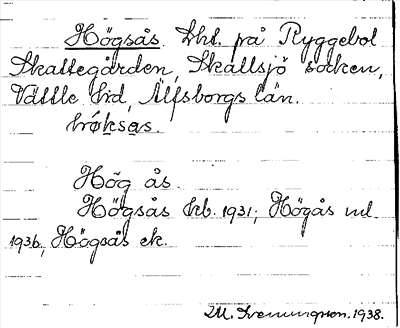 Högsås Lht. på Ryggebol
Skattegården, Skallsjö socken,
Vättle hd, Älfsborgs län.
hǿksas.
Hög ås.
Högsås kb. 1931; Högås ml.
1936, Högsås ek.
M. Svenungson. 1938.